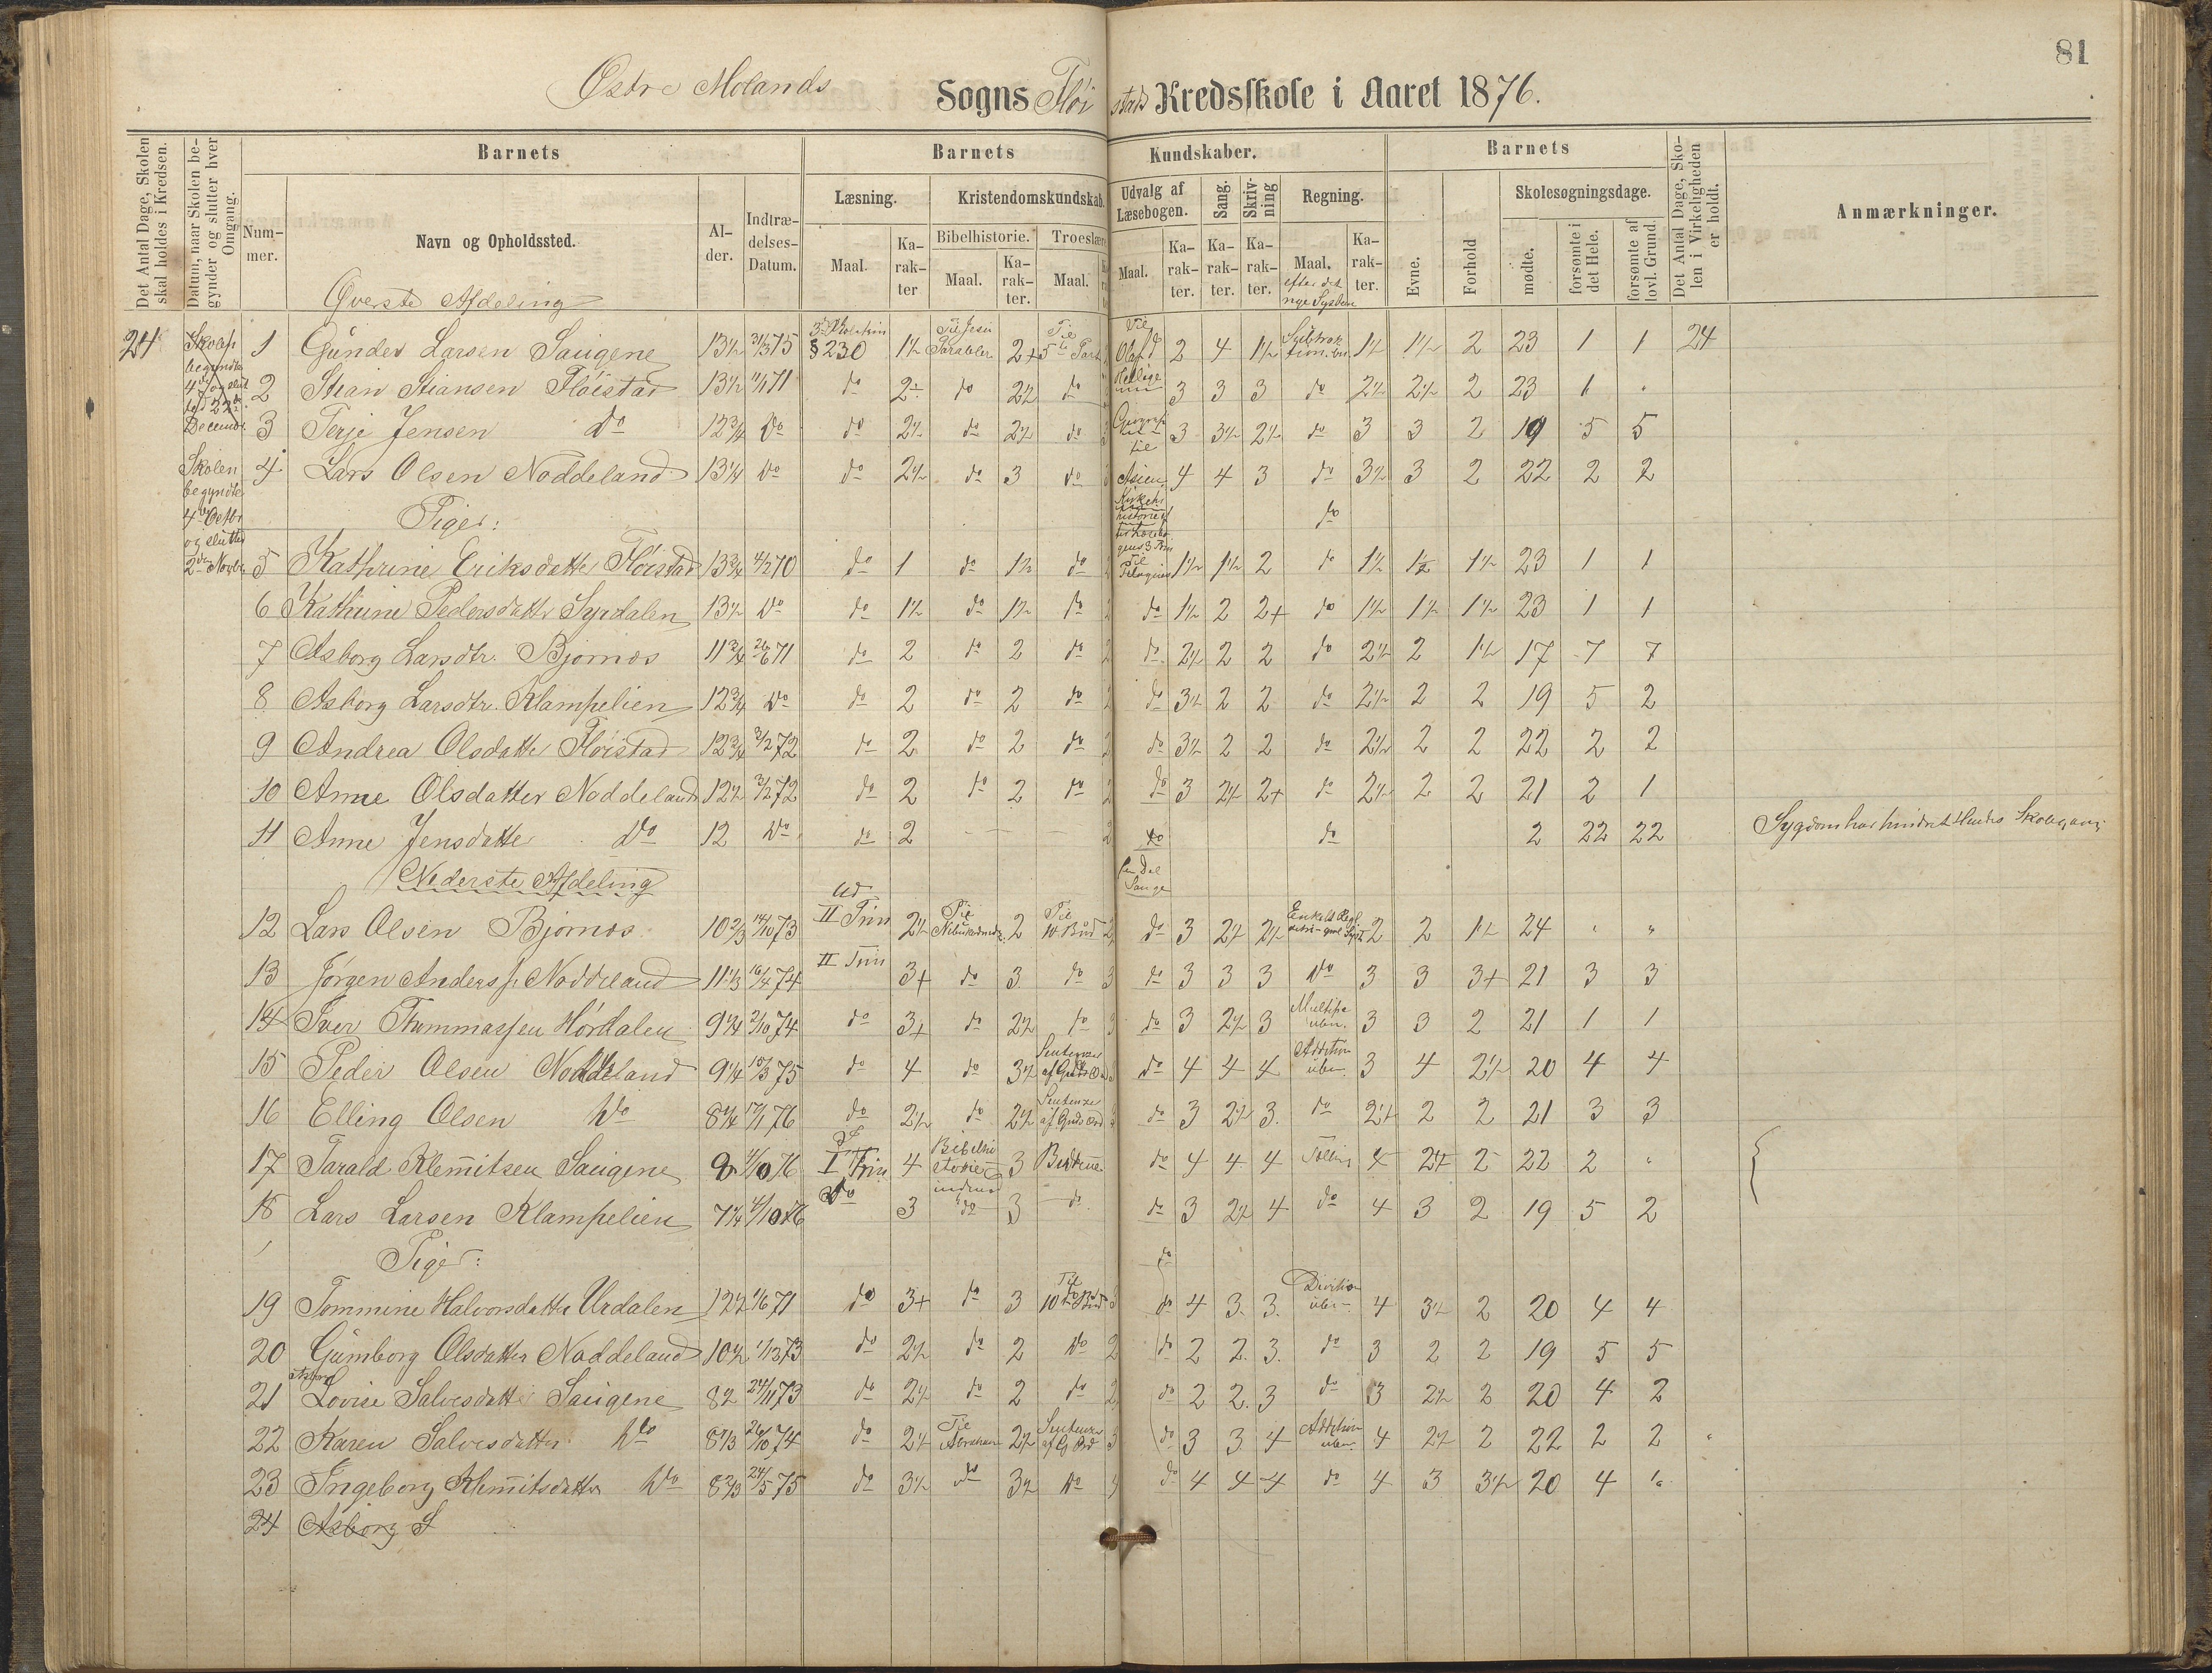 81
Østre Molands Sogns Fløistads Kredsskole i Aaret 1876.
Det Antal Dage, Skolen skal holdes i Kredsen.
Datum, naar Skolen begynder og slutter hver Omgang.
Barnets
Nummer.
Navn og Opholdssted.
Alder.
Indtrædelses-Datum.
Barnets Kundskaber.
Læsning.
Maal.
Karakter
Kristendomskundskab.
Bibelhistorie.
Maal.
Karakter.
Troeslære
Maal.
Udvalg af Læsebogen.
Maal.
Karakter.
Sang.
Karakter.
Skrivning
Karakter.
Regning.
Maal. efter det nye System
Karakter.
Barnets
Evne.
Forhold
Skolesøgningsdage.
mødte.
forsømte i det Hele.
forsømte af lovl. Grund
Det Antal Dage, Skolen i Virkeligheden er holdt.
Anmærkninger.
Øverste Afdeling
24
Skolen begyndte 4de Octbr og sluttet 2den Novbr.
1 Gunder Larsen Saugene 13½ 31/3 75 § 230 1½ Til Jesu Parabler 2+ Til 5te Part Til Olaf d 2 4 1½ 1½ 1½ 2 23 1 1 24
2 Stian Stiansen Fløistad 13½ 11/1 71 do 2 do 2½ do Hellige 3 3 3 do 2½ 2½ 2 23 1 "
3 Terje Jensen Do 12¾ Do do 2½ do 2½ do 3 3½ 2½ do 3 3 2 19 5 5
4 Lars Olsen Noddeland 13¼ Do do 2½ do 3 do til Asien 4 4 3 do 3½ 3 2 22 2 2
Piger:
do
5 Kathrine Eriksdatter Fløistad 13¾ 4/2 70 do 1 do 1½ do 1½ 1½ 2 do 1½ 1½ 1½ 23 1 1
6 Kathrine Pedersdatter Syrdalen 13½ Do do 1½ do 1½ do do 1½ 2 2+ do 1½ 1½ 1½ 23 1 1
7 Asborg Larsdtr. Bjornos 11¾ 26/6 71 do 2 do 2 do 2 do 2½ 2 2 do 2½ 2 1½ 17 7 7
8 Asborg Larsdtr. Klampelien 12¾ Do do 2 do 2 do 2 do 3½ 2 2 do 2½ 2 2 19 5 2
9 Andrea Olsdatter Fløistad 12¾ 3/2 72 do 2 do 2 do 2 do 3½ 2 2 do 2½ 2 2 22 2 2
10 Anne Olsdatter Noddeland 12½ 3/2 72 do 2 do 2 do 2 do 3 2½ 2+ do 2½ 2 2 21 2 1
11 Anne Jensdatter Do 12 Do do 2 — — — 2 do do 2 22 22 Sygdom har hindret Hendes Skolegang
Nederste Afdeling
12 Lars Olsen Bjornos 10⅔ 14/10 73 Ud II Trin 2½ Til 2 Til 10 Bud 2 do 3 2½ 2½ 2 2 1½ 24 " "
13 Jørgen Anderss. Noddeland 11⅓ 16/4 74 II Trin 3+ do 3 do 3 do 3 3 3 Do 3 3 3+ 21 3 3
14 Iver Thommassen Hørdalen 9¼ 2/10 74 do 3+ do 2½ do 3 do 3 2½ 3 3 3 2 21 1 1
15 Peder Olsen Noddeland 9¼ 15/3 75 do 4 do 3½ Sentenser af Guds Ord do 4 4 4 Addition uben. 3 4 2½ 20 4 4
16 Elling Olsen Do 8¼ 17/1 76 do 2½ do 2½ Sentenser af Guds Ord do 3 2½ 3. do 2½ 2 2 21 3 3
17 Tarald Klemitsen Saugene 8 4/10 76 I Trin 4 Bibelhistorie 3 do 4 4 4 4 2½ 2 22 2 "
18 Lars Larsen Klampelien 7¼ 4/10 76 Do 3 do 3 do do 3 2½ 4 do 4 3 2 19 5 2
Piger:
do
19 Tommine Halvorsdatter Urdalen 12½ 1/6 71 do 3+ do 3 Til 10 Bud 3 do 4 3. 3. Division uben. 4 3½ 2 20 4 4
20 Gumborg Olsdatter Noddeland 10½ do 2½ do 2 Do 2 do 2 2. 3. do 3 2 2 19 5 5
21 Asborg Lovise Salvesdatter Saugene 24/11 73 do 2½ do 2 do 2 do 2 2. 3 do 3 2½ 2 20 4 2
22 Karen Salvesdatter Do 8⅓ 26/10 74 do 2½ Til Abraham 2½ Sentenser af G Ord 3 do 3 3 4 Addition uben. 4 2½ 2 22 2 2
23 Ingeborg Klemitsdatter Do 8⅔ 24/5 75 do 3½ do 3½ Do 4 do 4 4 4 do 4 3 3½ 20 4 "
24 Asborg S